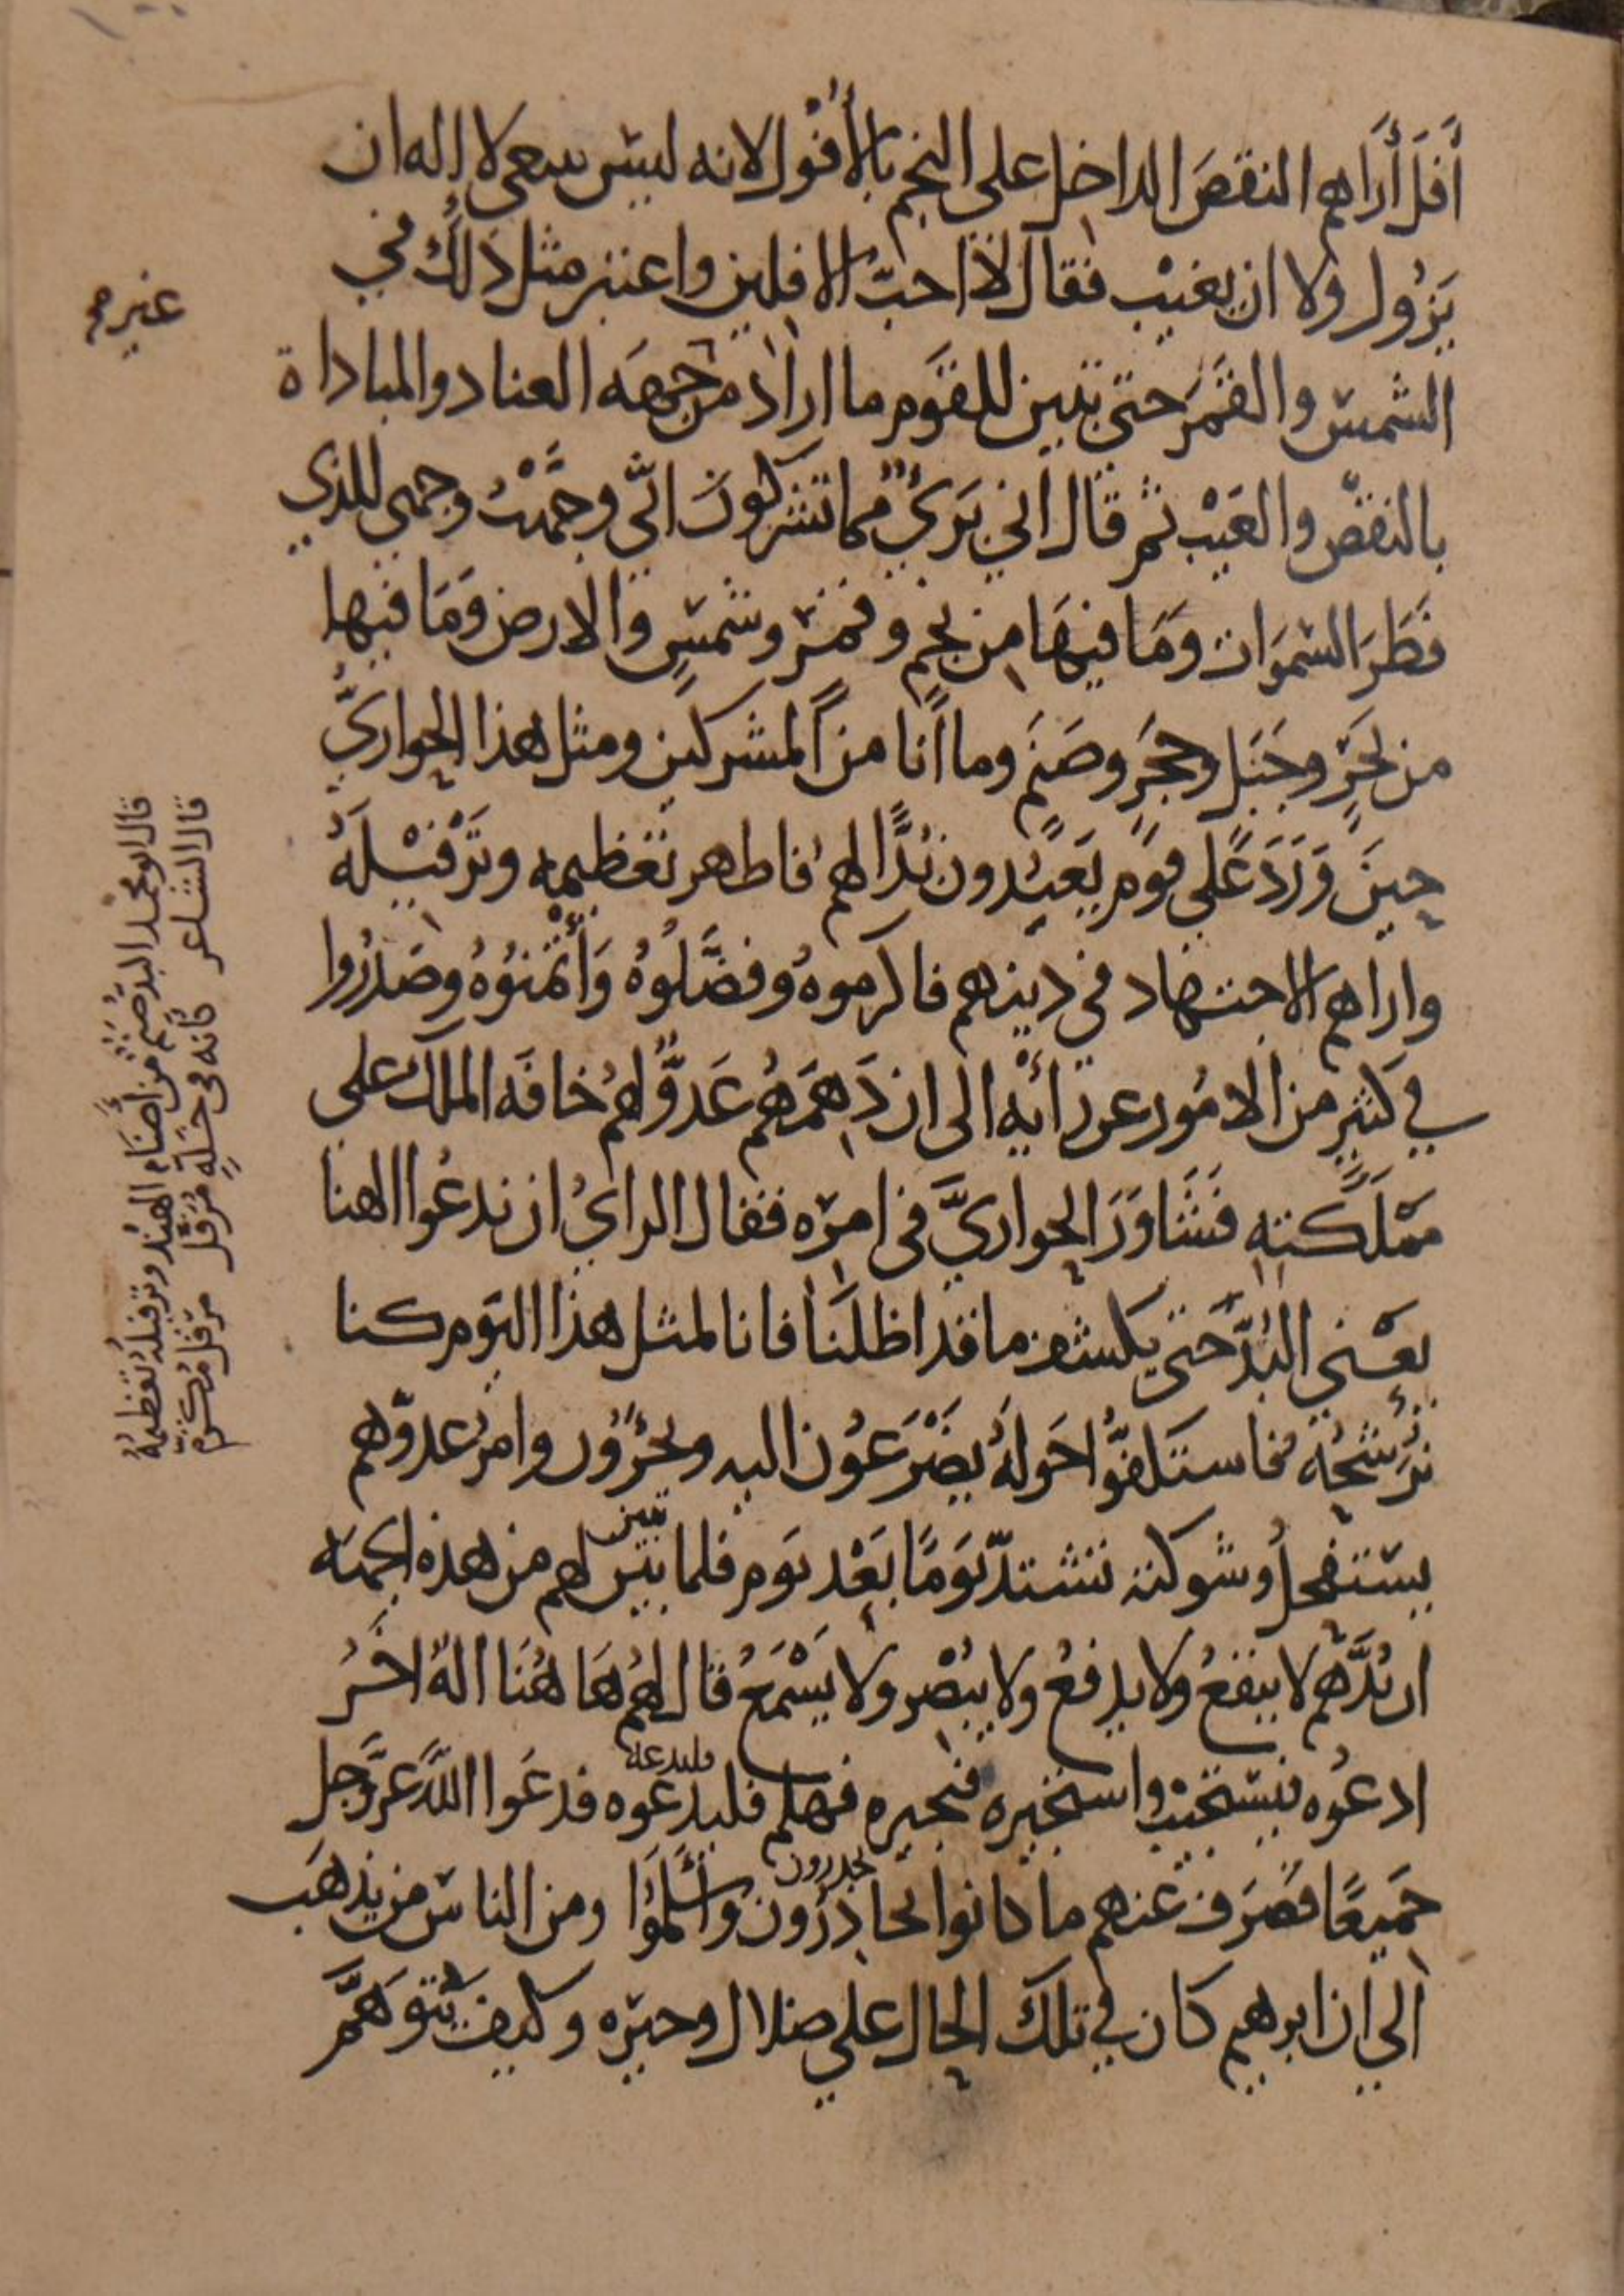 أَفَلَ أَرَاهم النقصَ الداخل على النجم بالأُفُول لانه ليس ينبغي لإله ان
يَزُول ولا ان يغيْب فقال لا احبّ الافلين واعتبر مثل ذلك في
الشمس والقَمَر حتى تبين للقوم ما اراد من جهة العناد والمباداة
بالنقص والعَيْب ثم قال اني بَرىٌ مما تشركون انّى وجَّهْتُ وجهى للذي
فَطَرَ السموَات وَمَا فيهَا من نجمٍ وقمر وشمسٍ والارض وَمَا فيها
من بحَرٍ وجَبَل وحجَرٍ وصَنَمٍ وما أنا من المشركين ومثل هذا الحواريُّ
حِينَ وَرَدَ عَلى قومٍ يَعبُدون بُدًّا لهم فاظهر تعظيمه وتَرْفيْلَهُ
واراهم الاجتهاد في دينهم فاكرموهُ وفضَّلُوهُ وَأْتَمَنُوْهُ وصَدَرُوا
في كثيرٍ من الامُور عن رَأْيِه الى ان دَهِمَهُم عَدوٌّ لهُم خافَه الملك على
مَمْلَكته فَشَاوَرَ الحواريَّ في امره فقال الرايُ ان ندعُوا الهنا
يعْني البُدَّ حتى يكشف ما قد اظلنا فانا لمثل هذا اليَوم كنا
نُرَشِّحُهُ فاستكفُّوا حَوله يضْرَعُون اليه ويجئَرُون وامرُ عدوّهم
يستفحلُ وشوكته تشتدّ يَومًا بَعْد يَوم فلما تبيّن لهم من هذه الجهة
تبين
ان بُدَّهم لا ينفعُ ولا يدفعُ ولا يبُصْر ولا يَسْمَعُ قال لهُم هَا هُنَا الهٌ اخَرُ
ادعُوه فيستجيْب واستجيره فيجيره فهلم فليدعوه فدعَوا اللّٰهَ عزَّ وجل
فلندعه
جَميعًا فصَرَف عنهم ما كانوا يحاذرُون وأسْلَمُوا ومن الناس من يذهَب
يحذرون
الي ان ابرهيم كان في تلك الحال علي ضلال وحيره وكيف يُتَوهَّمَ
غيرهم
قال ابو محمد البُدّ صَنَمٌ من أصْنَام الهنْد وترفيله تعظيمهُ
قال الشاعر كأنه في حُلَةٍ مُرَفَّل مرفل مُكرم